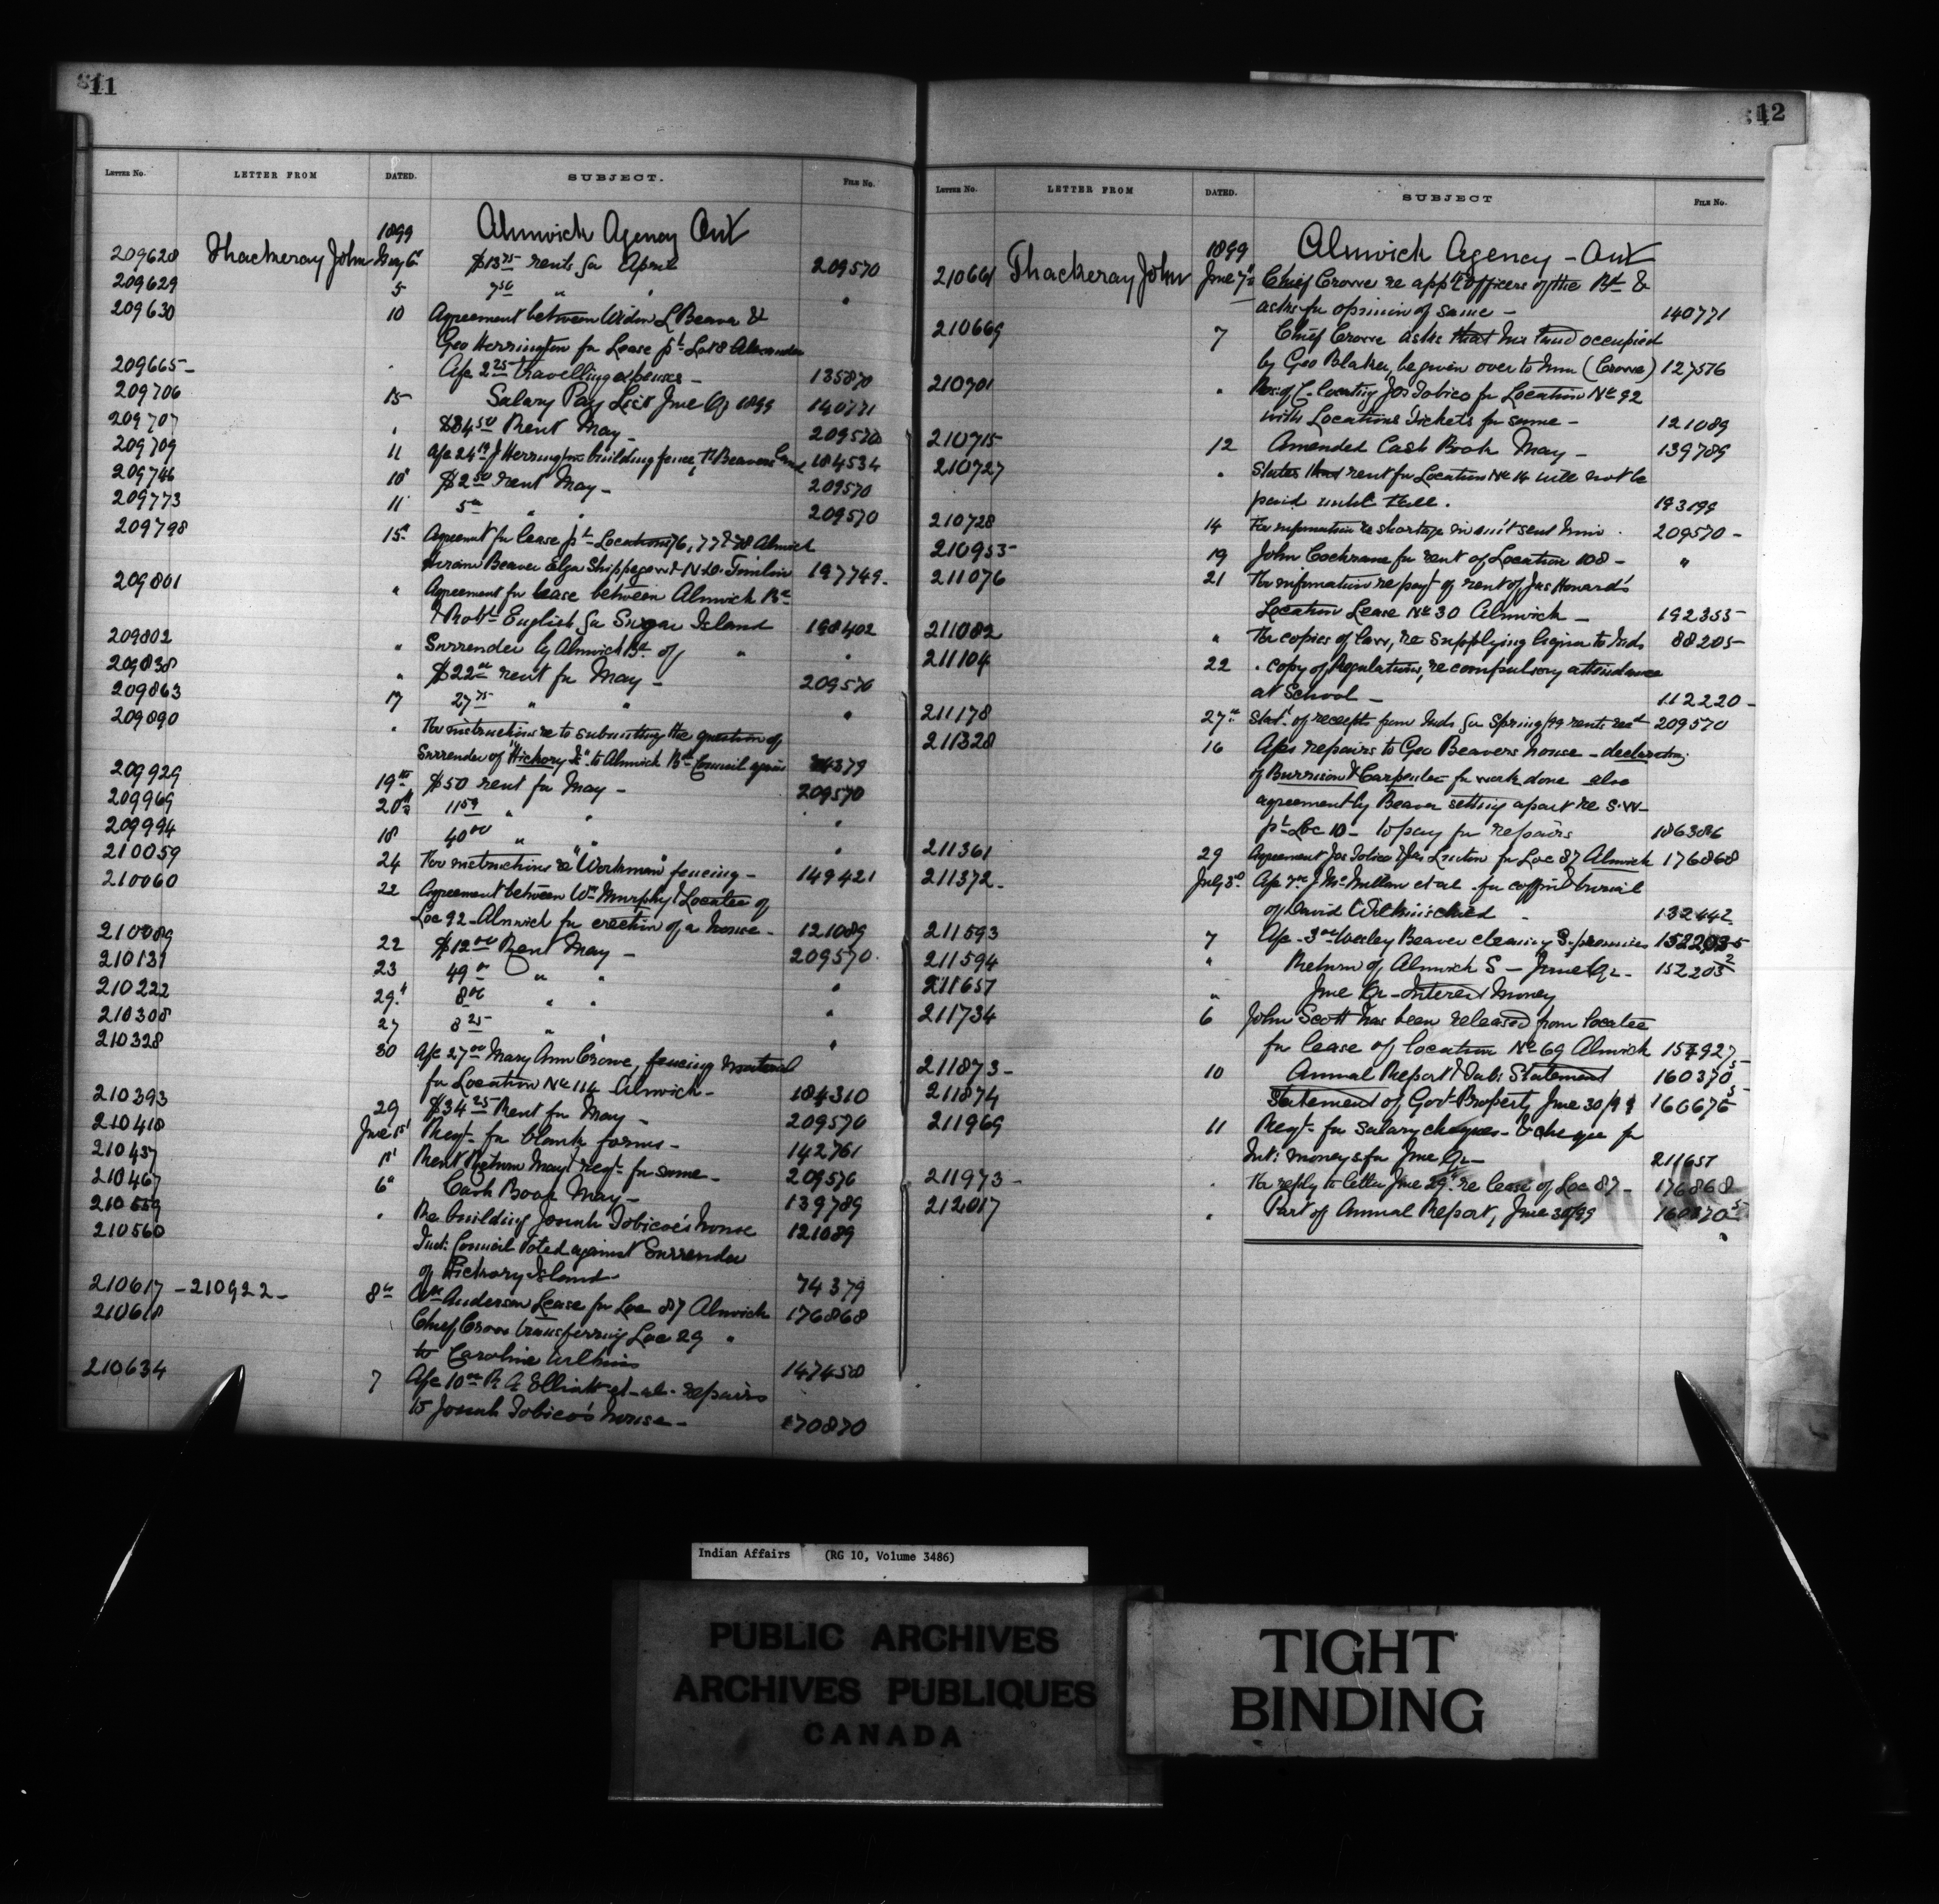 11
LETTER No. LETTER FROM DATED. SUBJECT. FILE No.
1899 Alnwick Agency Ont
209628 Thackeray John May 6th $13 75 rents for April 209570
209629 5 7 50 " " "
209630 10 Agreement between Widow L Beaver &
Geo Herrington for Lease pt Lot 8 Alexander 135870
209665 - " Afc 2 25 travelling expenses - 140771
209706 15 Salary Pay List June Qr 1899
209707 " $34 50 Rent May - 209570
209709 11 Afc 24 J Herrington building fence, 184534
209746 10 $2 50 rent May - 209570
209773 11 5 " " 209570
209798 15 Agreemt for lease pt Locations 76, 77 & 78 Alnwick
Hiram Beaver Elga Shippegow & N. W. Tomlin 197749 -
209801 " Agreement for lease between Alnwick Bd
& Robt English for Sugar Island 198402
209802 " Surrender by Alnwick Bd of " "
209838 " $22 rent for May - 209570
209863 17 27 75 " " "
209890 " For instructions re to submitting the question of
Surrender of "Hickory I" to Alnwick Bd Council again 74379
209929 19th $50 rent for May - 209570
209969 20th 11 59 " " "
209994 18 40 00 " " "
210059 24 For instructions re "Workman" fencing - 149421
210060 22 Agreement between Wm Murphy & Locatee of
Loc 92 - Alnwick for erection of a house - 121089
210089 22 $12 00 Rent May - 209570
210131 23 49 " " "
210222 29 8 00 " " "
210308 27 8 25 " " "
210328 30 Afc 27 00 Mary Ann Crowe, fencing material
for Location No 114 Alnwick - 184310
210393 29 $34 25 Rent for May - 209570
210410 June 1st Reqt for blank forms - 142761
210437 1st Rent Return May & reqt for same - 209570
210467 6 Cash Book May - 139789
210559 " Re building Josiah Tobicoe's house 121089
210560 Ind: Council voted against Surrender
of Hickory Island - 74379
210617 - 210922 - 8th Wm Anderson Lease for Loc 87 Alnwick 176868
210618 Chief Crowe transferring Loc 29 "
to Caroline Wilkins 147458
210634 7 Afc 10 00 R. A. Elliott et al. repairs
to Josiah Tobico's house - 170870
12
LETTER No. LETTER FROM DATED. SUBJECT FILE No.
1899 Alnwick Agency - Ont
210661 Thackeray John June 7th Chief Crowe re appt officers of the Bd &
asks for opinion of same - 140771
210669 7 Chief Crowe asks that his land occupied
by Geo Blaker, be given over to him (Crowe) 127576
210701 " Res: of C. locating Jos Tobico for Location No 92
with Locations Tickets for same - 121089
210715 12 Amended Cash Book May - 139789
210727 " States that rent for Location No 16 will not be
paid until Fall. 193199
210728 14 For information re shortage in am't sent him. 209570 -
210953 - 19 John Cochrane for rent of Location 108 - "
211076 21 For information re payt of rent of Jas Howard's
Location Lease No 30 Alnwick - 192355
211082 " For copies of law, re supplying liquor to Inds 88205
211104 22 " copy of Regulations, re compulsory attendance
at School - 112220 -
211178 27th Stat. of receipts from Inds for Spring/99 rents 209570
211328 16 Afcs repairs to Geo Beavers house - declaration
of Burrison & Carpenter for work done also
agreement by Beaver setting apart re S. W -
pt Loc 10 - to pay for repairs 186386
211361 29 Agreement Jos Tobico & Jas Linton for Loc 87 Alnwick 176868
211372 - July 3rd Afc 7 00 J McMullen et al for coffin & burial
of David Wilkins child - 132442
211593 7 Afc - 3 00 Wesley Beaver cleaning S. premises
211594 " Return of Alnwick S - June Qr - 152205 2
211657 " June Qr - Interest Money
211734 6 John Scott has been released from locatee
for lease of location No 69 Alnwick
211873 - 10 Annual Report & Tab: Statement 160370 5
211874 Statement of Govt Property June 30/99 160676 5
211969 11 Reqt for Salary cheques - & cheque for
Int: moneys for June Qr - 211657
211973 - " For reply to letter June 29 re lease of Loc 87 - 176868
212017 " Part of Annual Report, June 30/99 160370 5
Indian Affairs (RG 10, Volume 3486)
PUBLIC ARCHIVES
ARCHIVES PUBLIQUES
CANADA
TIGHT
BINDING